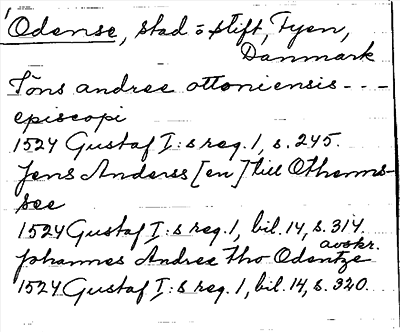 Odense, stad o stift, Fyen,
Danmark
Jöns andree ottoniensis - - -
episcopi
1524 Gustaf I:s reg. 1, s. 245.
Jens Anderss [en] till Othenns-
see
1524 Gustaf I:s reg. 1, bil. 14, s. 314.
avskr.
Johannes Andree tho Odentze
1524 Gustaf I:s reg. 1, bil. 14, s. 320.